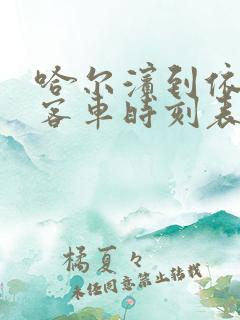 哈尔滨到依
客车时刻表
橘夏々
未经同意禁止转载